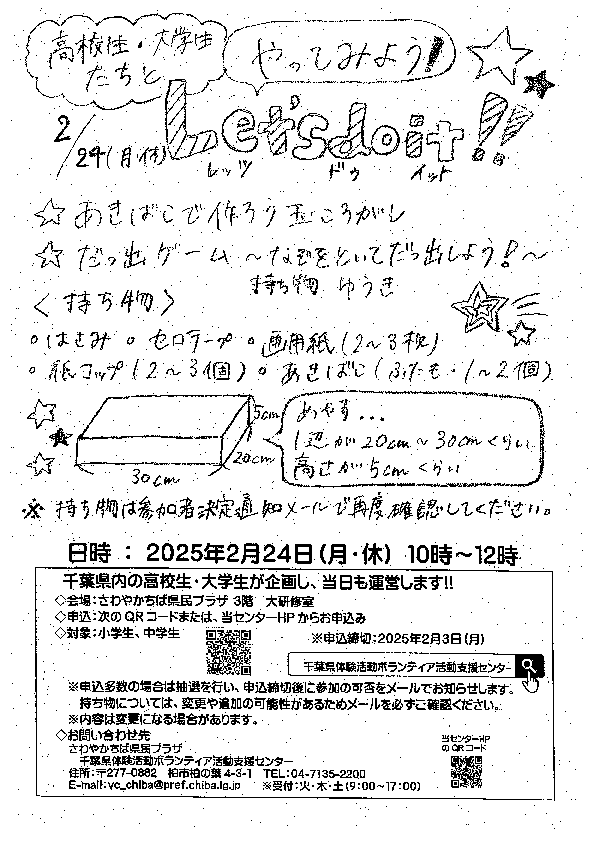 高校生・大学生
たちと
やってみよう!
2/24(月・休)
Let's do it!!
レッツ ドゥ イット
☆ あきばこで作ろう 玉ころがし
☆ だっ出ゲーム 〜なぞをといてだっ出しよう!〜
持ち物 ゆうき
〈持ち物〉
○はさみ ○セロテープ ○画用紙(2〜3枚)
○紙コップ(2〜3個) ○あきばこ(ふたも・1〜2個)
5cm
20cm
30cm
めやす...
1辺が20cm〜30cmくらい
高さが5cmくらい
※ 持ち物は参加者決定通知メールで再度確認してください。
日時 : 2025年2月24日(月・休) 10時〜12時
千葉県内の高校生・大学生が企画し、当日も運営します!!
◇会場:さわやかちば県民プラザ 3階 大研修室
◇申込:次のQRコードまたは、当センターHPからお申込み
◇対象:小学生、中学生
※申込締切:2025年2月3日(月)
千葉県体験活動ボランティア活動支援センター
※申込多数の場合は抽選を行い、申込締切後に参加の可否をメールでお知らせします。
持ち物については、変更や追加の可能性があるためメールを必ずご確認ください。
※内容は変更になる場合があります。
◇お問い合わせ先
さわやかちば県民プラザ
千葉県体験活動ボランティア活動支援センター
住所:〒277-0882 柏市柏の葉4-3-1 TEL:04-7135-2200
E-mail:vc_chiba@pref.chiba.lg.jp ※受付:火・木・土(9:00〜17:00)
当センターHP
のQRコード